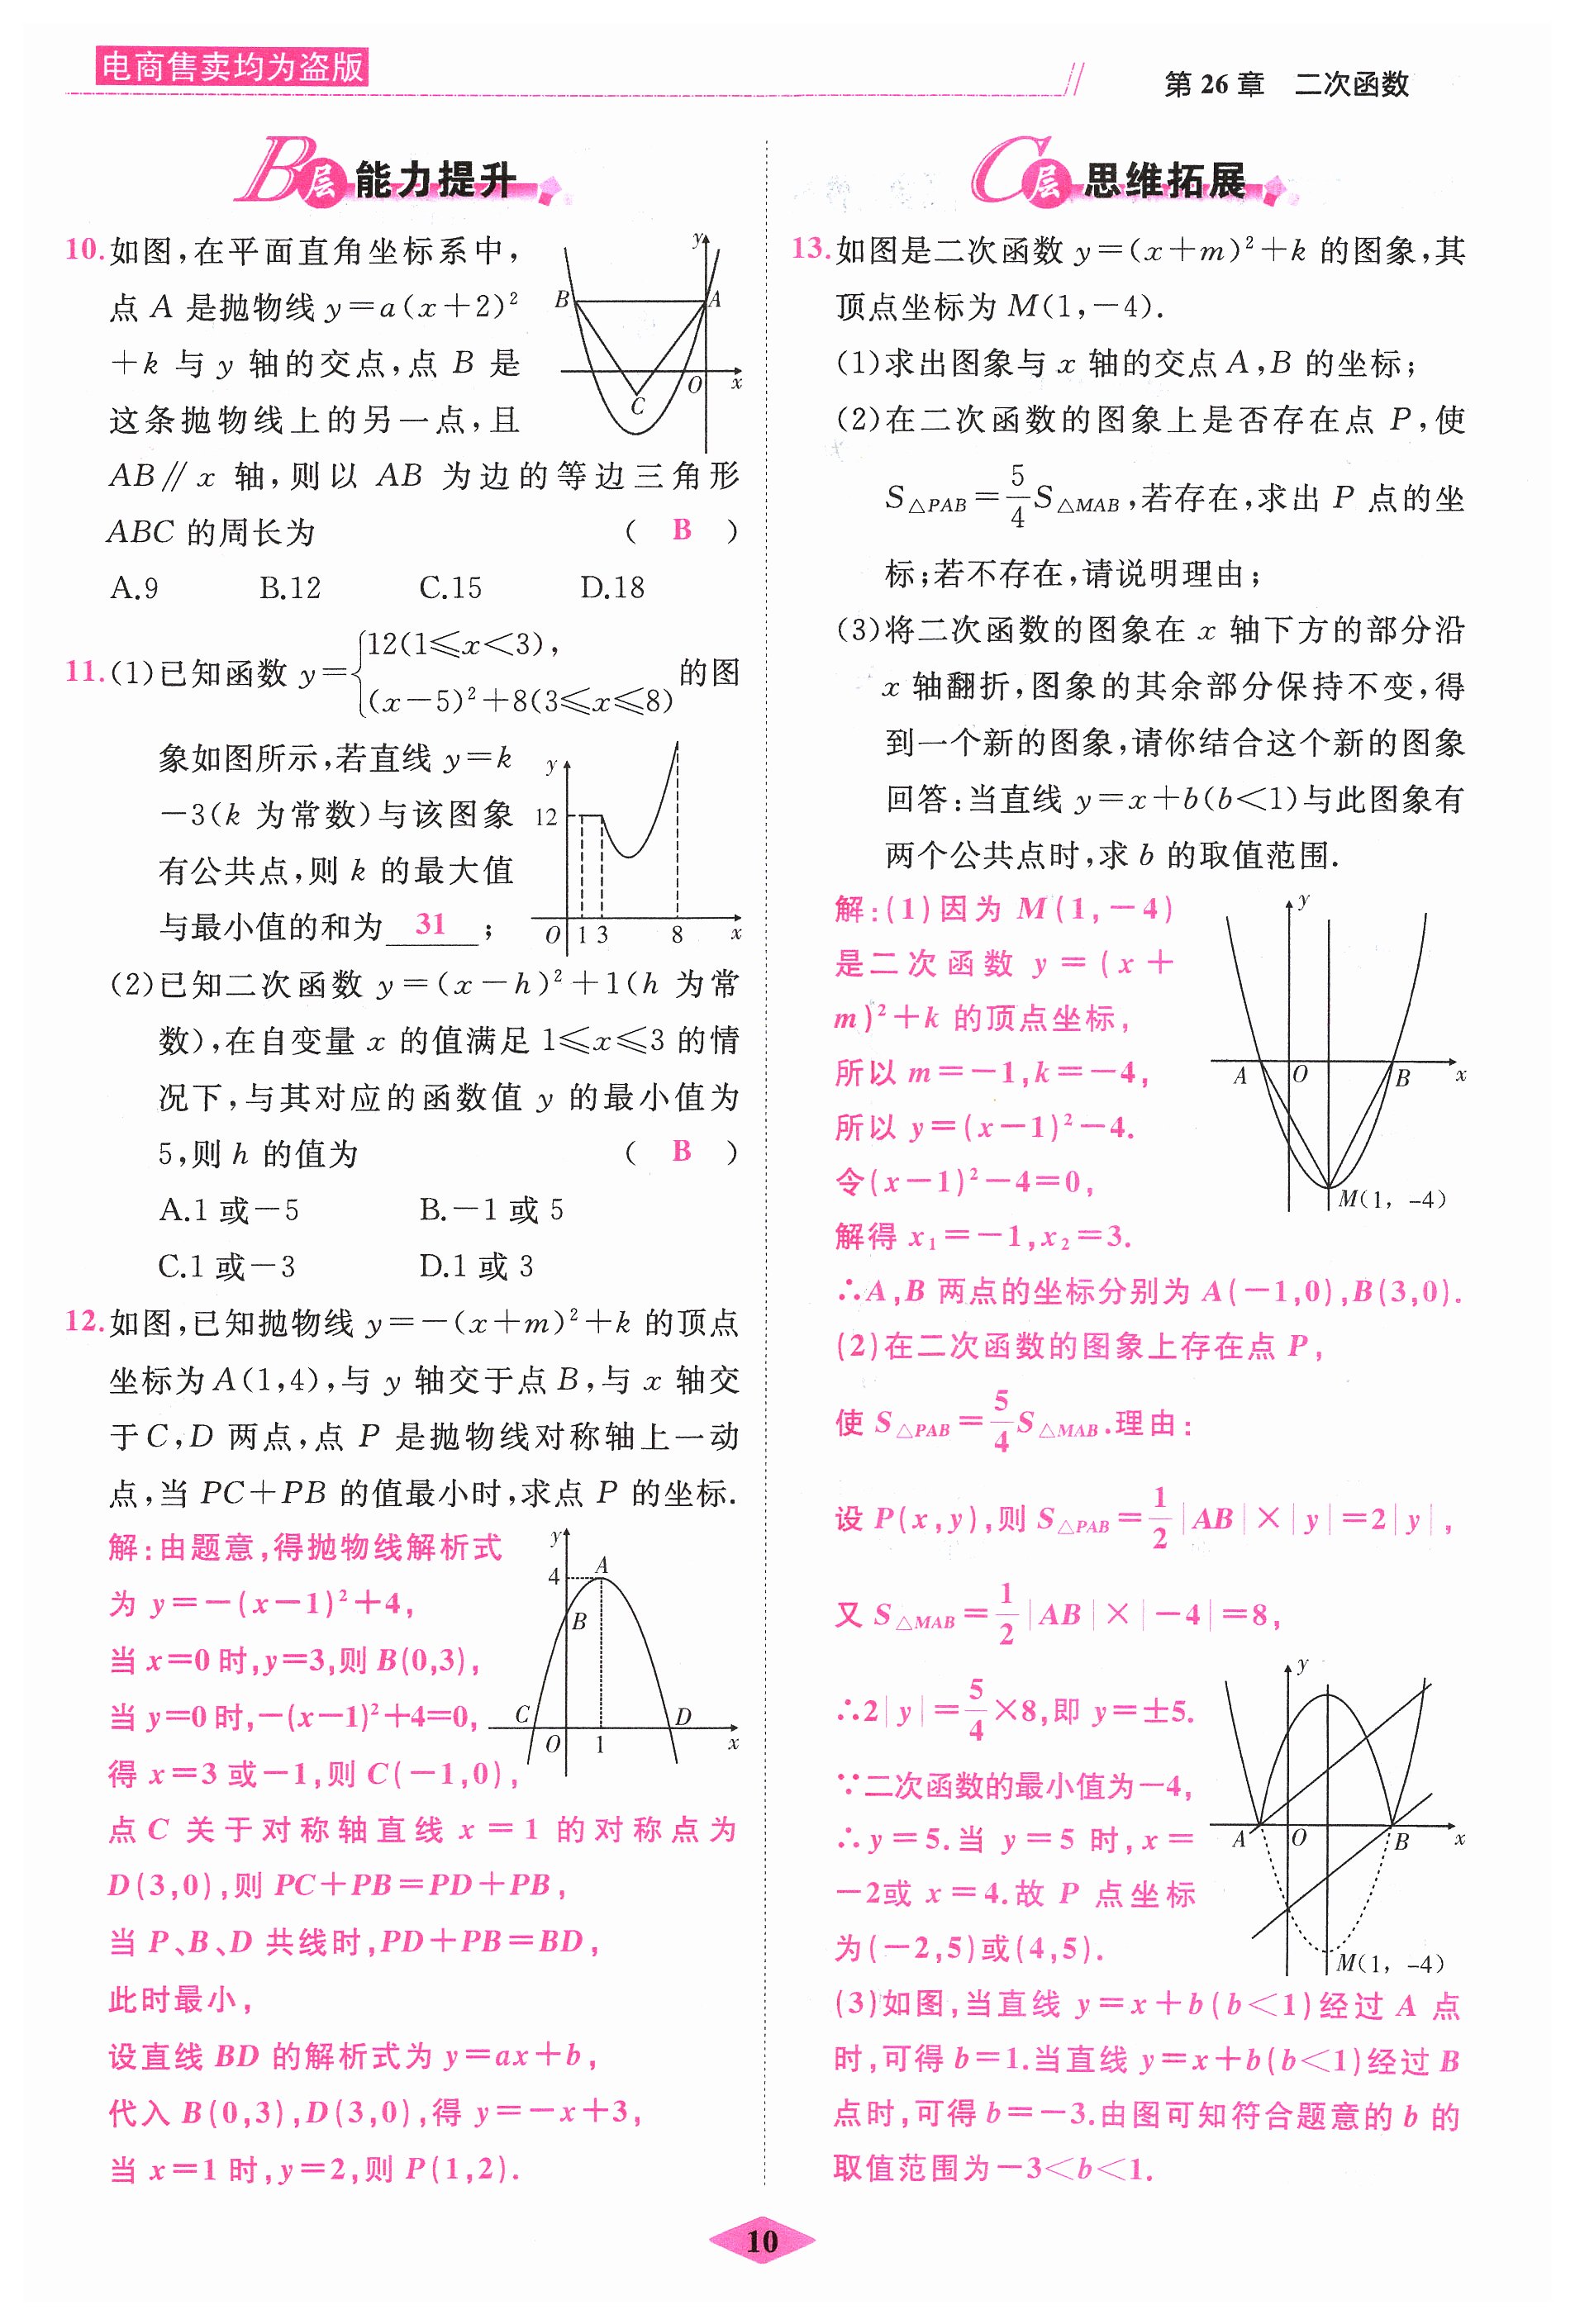 电商售卖均为盗版
第 26 章 二次函数
B层 能力提升
10.如图,在平面直角坐标系中,
点 A 是抛物线 y=a(x+2)²
+k 与 y 轴的交点,点 B 是
这条抛物线上的另一点,且
AB∥x 轴,则以 AB 为边的等边三角形
ABC 的周长为 ( B )
A.9 B.12 C.15 D.18
y
B A
O x
C
11.(1)已知函数 y={12(1≤x<3), (x-5)²+8(3≤x≤8) 的图
象如图所示,若直线 y=k
-3(k 为常数)与该图象
有公共点,则 k 的最大值
与最小值的和为 31 ;
y
12
O 1 3 8 x
(2)已知二次函数 y=(x-h)²+1(h 为常
数),在自变量 x 的值满足 1≤x≤3 的情
况下,与其对应的函数值 y 的最小值为
5,则 h 的值为 ( B )
A.1 或-5 B.-1 或 5
C.1 或-3 D.1 或 3
12.如图,已知抛物线 y=-(x+m)²+k 的顶点
坐标为 A(1,4),与 y 轴交于点 B,与 x 轴交
于 C,D 两点,点 P 是抛物线对称轴上一动
点,当 PC+PB 的值最小时,求点 P 的坐标.
解:由题意,得抛物线解析式
为 y=-(x-1)²+4,
当 x=0 时,y=3,则 B(0,3),
当 y=0 时,-(x-1)²+4=0,
得 x=3 或-1,则 C(-1,0),
y
4 A
B
C D
O 1 x
点 C 关于对称轴直线 x=1 的对称点为
D(3,0),则 PC+PB=PD+PB,
当 P、B、D 共线时,PD+PB=BD,
此时最小,
设直线 BD 的解析式为 y=ax+b,
代入 B(0,3),D(3,0),得 y=-x+3,
当 x=1 时,y=2,则 P(1,2).
C层 思维拓展
13.如图是二次函数 y=(x+m)²+k 的图象,其
顶点坐标为 M(1,-4).
(1)求出图象与 x 轴的交点 A,B 的坐标;
(2)在二次函数的图象上是否存在点 P,使
S△PAB=5/4 S△MAB,若存在,求出 P 点的坐
标;若不存在,请说明理由;
(3)将二次函数的图象在 x 轴下方的部分沿
x 轴翻折,图象的其余部分保持不变,得
到一个新的图象,请你结合这个新的图象
回答:当直线 y=x+b(b<1)与此图象有
两个公共点时,求 b 的取值范围.
解:(1)因为 M(1,-4)
是二次函数 y=(x+
m)²+k 的顶点坐标,
所以 m=-1,k=-4,
所以 y=(x-1)²-4.
令(x-1)²-4=0,
解得 x₁=-1,x₂=3.
y
A O B x
M(1, -4)
∴A,B 两点的坐标分别为 A(-1,0),B(3,0).
(2)在二次函数的图象上存在点 P,
使 S△PAB=5/4 S△MAB.理由:
设 P(x,y),则 S△PAB=1/2|AB|×|y|=2|y|,
又 S△MAB=1/2|AB|×|-4|=8,
∴2|y|=5/4×8,即 y=±5.
∵二次函数的最小值为-4,
∴y=5.当 y=5 时,x=
-2或 x=4.故 P 点坐标
为(-2,5)或(4,5).
y
A O B x
M(1, -4)
(3)如图,当直线 y=x+b(b<1)经过 A 点
时,可得 b=1.当直线 y=x+b(b<1)经过 B
点时,可得 b=-3.由图可知符合题意的 b 的
取值范围为-3<b<1.
10